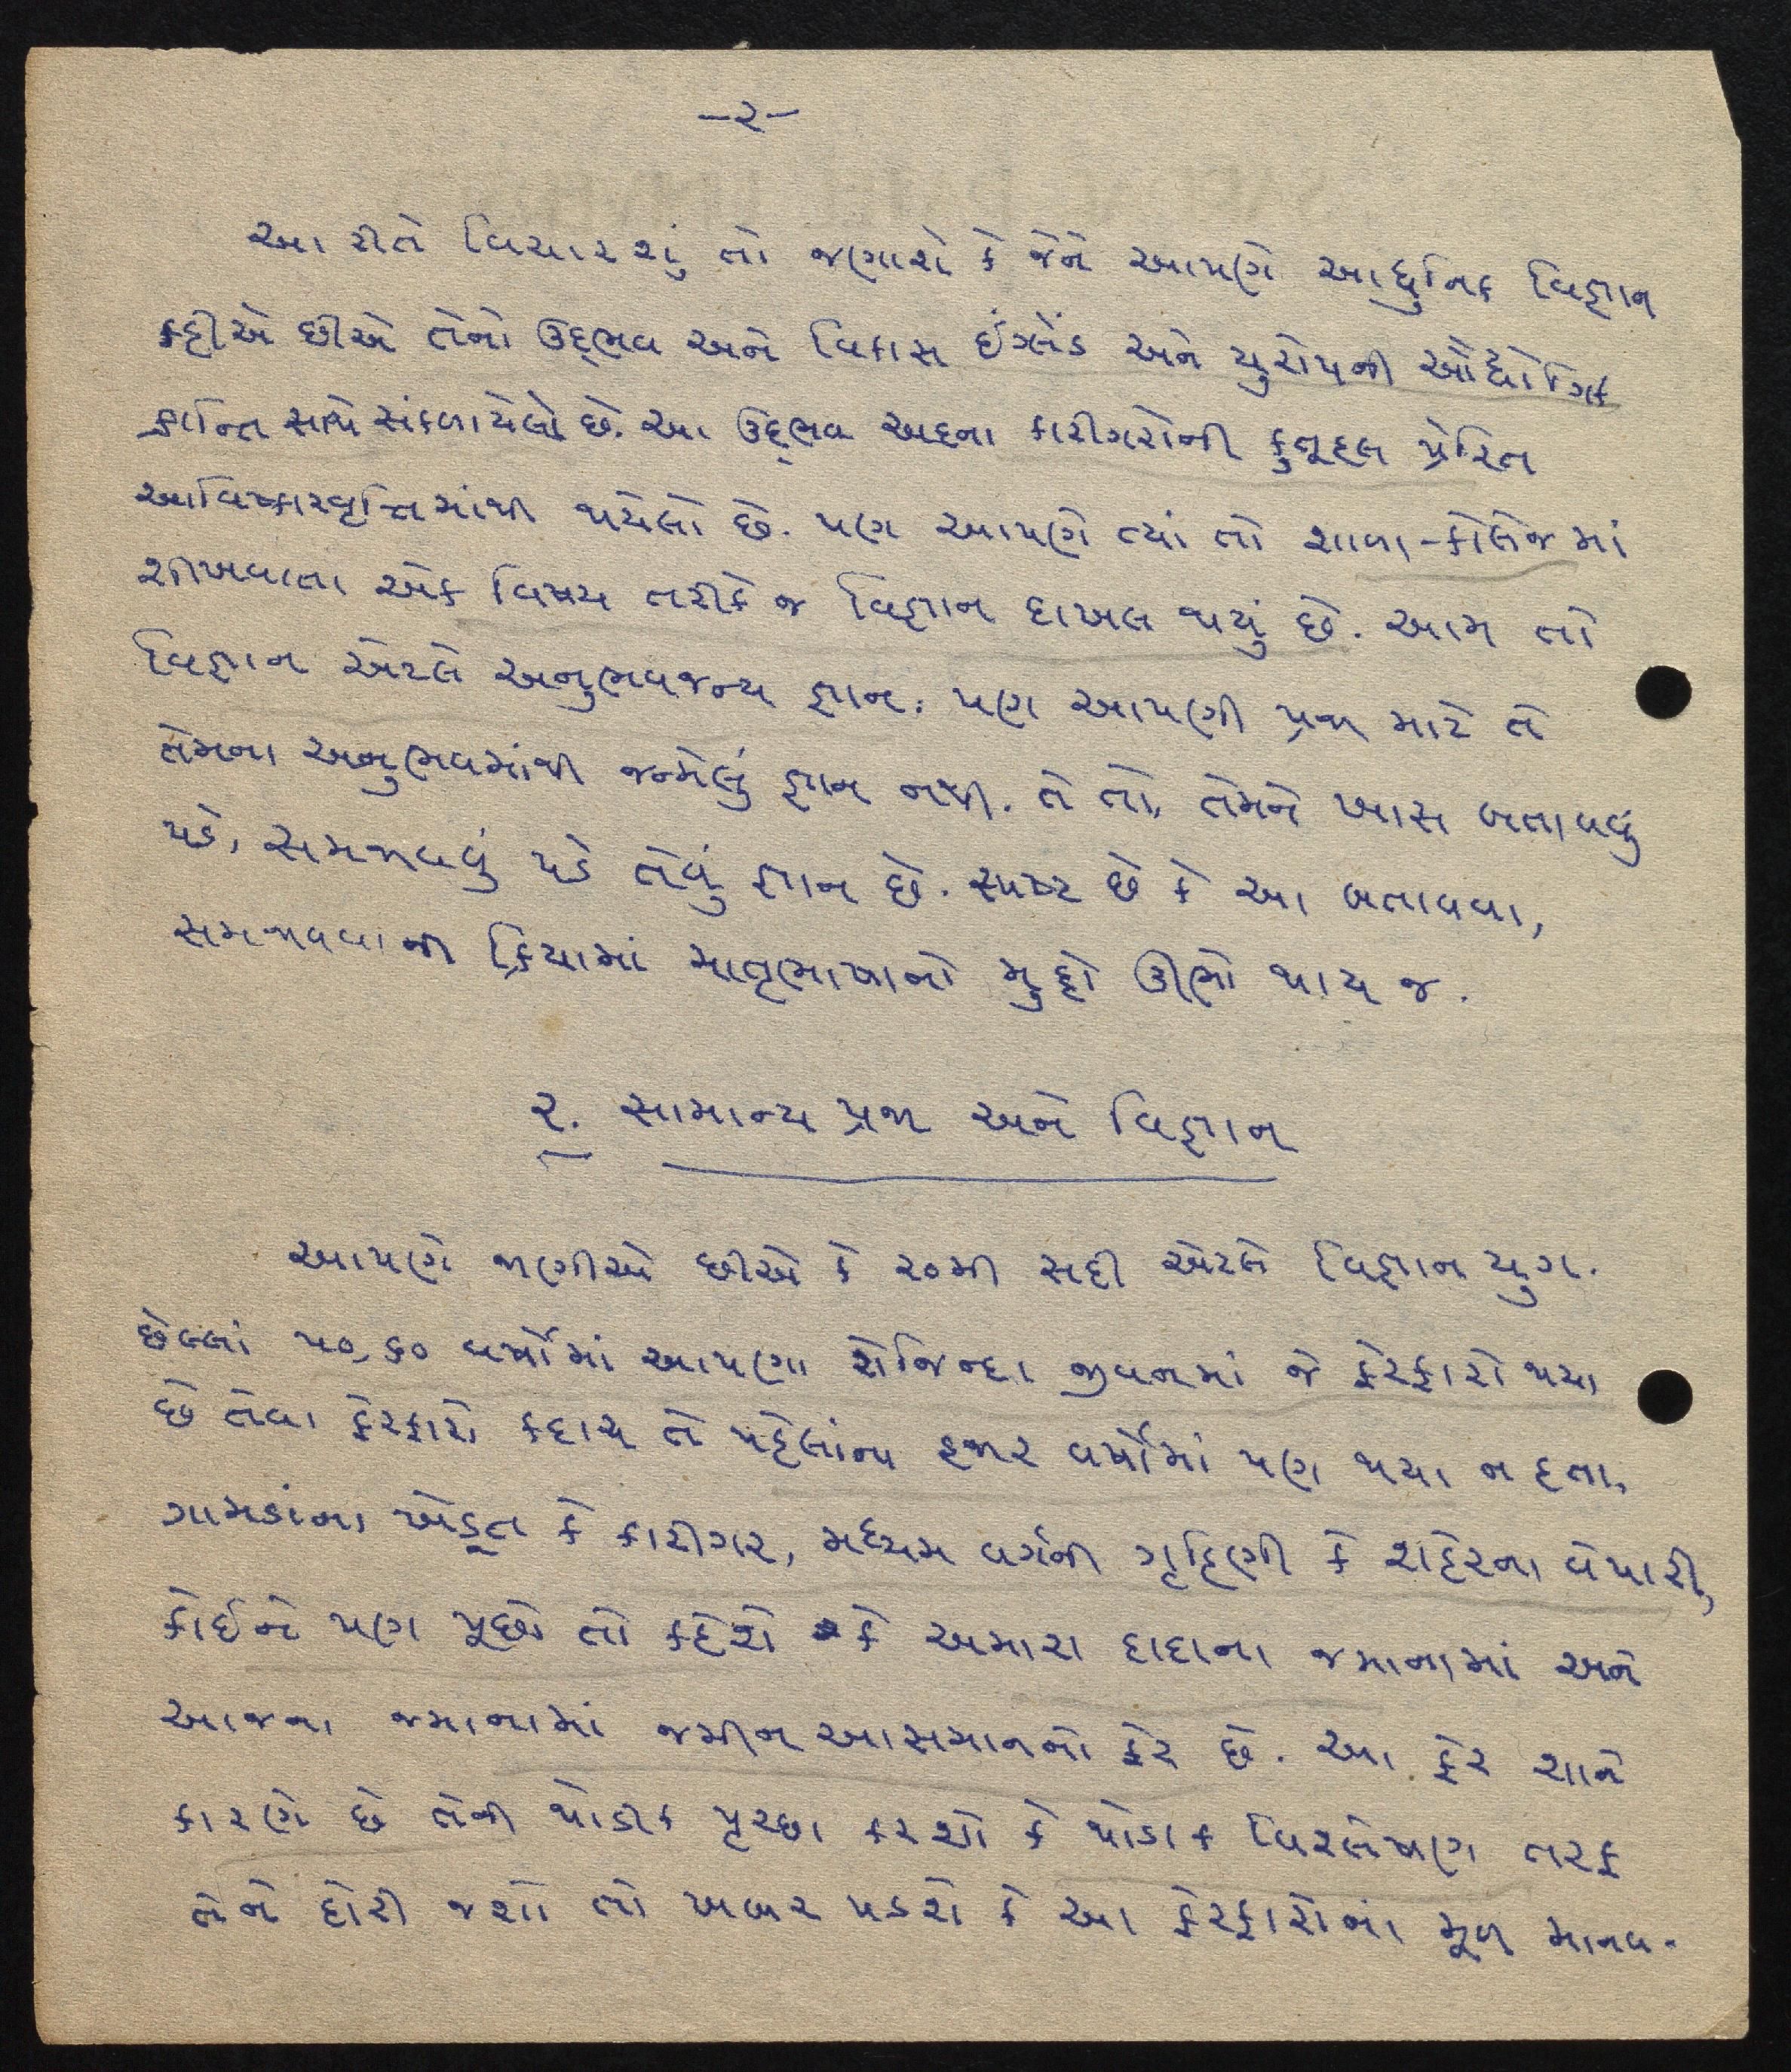 -૨-
આ રીતે વિચારશું તો જણાશે કે જેને આપણે આધુનિક વિજ્ઞાન
કહીએ છીએ તેનો ઉદ્ભવ અને વિકાસ ઈંગ્લેંડ અને યુરોપની ઔદ્યોગિક
ક્રાન્તિ સાથે સંકળાયેલો છે. આ ઉદ્ભવ અદના કારીગરોની કુતૂહલ પ્રેરિત
આવિષ્કારવૃત્તિમાંથી થયેલો છે. પણ આપણે ત્યાં તો શાળા-કોલેજમાં
શીખવાતા એક વિષય તરીકે જ વિજ્ઞાન દાખલ થયું છે. આમ તો
વિજ્ઞાન એટલે અનુભવજન્ય જ્ઞાન. પણ આપણી પ્રજા માટે તે
તેમના અનુભવમાંથી જન્મેલું જ્ઞાન નથી. તે તો, તેમને ખાસ બતાવવું
પડે, સમજાવવું પડે તેવું જ્ઞાન છે. સ્પષ્ટ છે કે આ બતાવવા,
સમજાવવાની ક્રિયામાં માતૃભાષાનો મુદ્દો ઊભો થાય જ.
૨. સામાન્ય પ્રજા અને વિજ્ઞાન
આપણે જાણીએ છીએ કે ૨૦મી સદી એટલે વિજ્ઞાન યુગ.
છેલ્લાં ૫૦,૬૦ વર્ષોમાં આપણા રોજિન્દા જીવનમાં જે ફેરફારો થયા
છે તેવા ફેરફારો કદાચ તે પહેલાંના હજાર વર્ષોમાં પણ થયા ન હતા.
ગામડાંના ખેડૂત કે કારીગર, મધ્યમ વર્ગની ગૃહિણી કે શહેરના વેપારી,
કોઈને પણ પૂછો તો કહેશે કે અમારા દાદાના જમાનામાં અને
આજના જમાનામાં જમીન આસમાનનો ફેર છે. આ ફેર શાને
કારણે છે તેની થોડીક પૃચ્છા કરશો કે થોડાક વિશ્લેષણ તરફ
તેને દોરી જશો તો ખબર પડશે કે આ ફેરફારોનાં મૂળ માનવ-